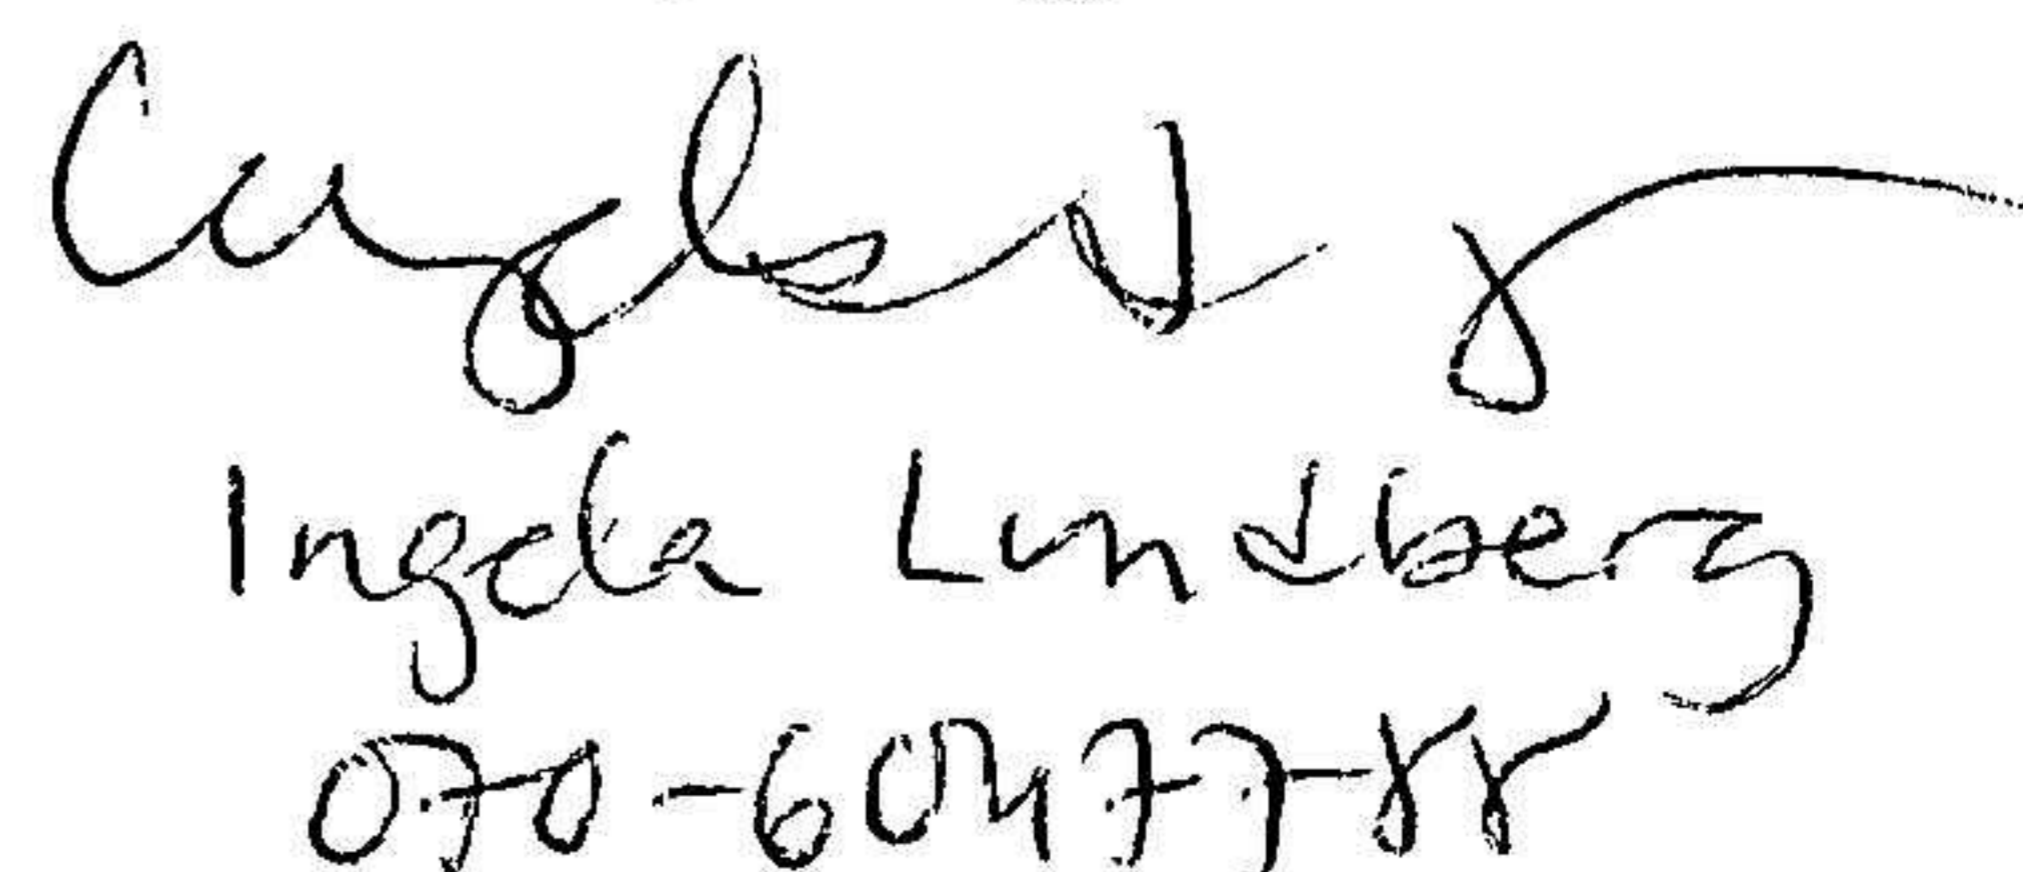 Ingela Lundberg
070-6047788